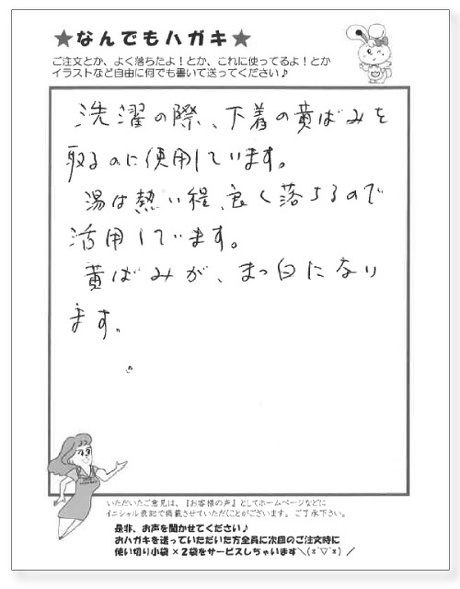 ★なんでもハガキ★
ご注文とか、よく落ちたよ!とか、これに使ってるよ!とか
イラストなど自由に何でも書いて送ってください♪
洗濯の際、下着の黄ばみを
取るのに使用しています。
湯は熱い程、良く落ちるので
活用しています。
黄ばみが、まっ白になり
ます。
いただいたご意見は、『お客様の声』としてホームページなどに
イニシャル表記で掲載させていただくことがございます。ご了承下さい。
是非、お声を聞かせてください♪
おハガキを送っていただいた方全員に次回のご注文時に
使い切り小袋×2袋をサービスしちゃいます＼(*^▽^*)／